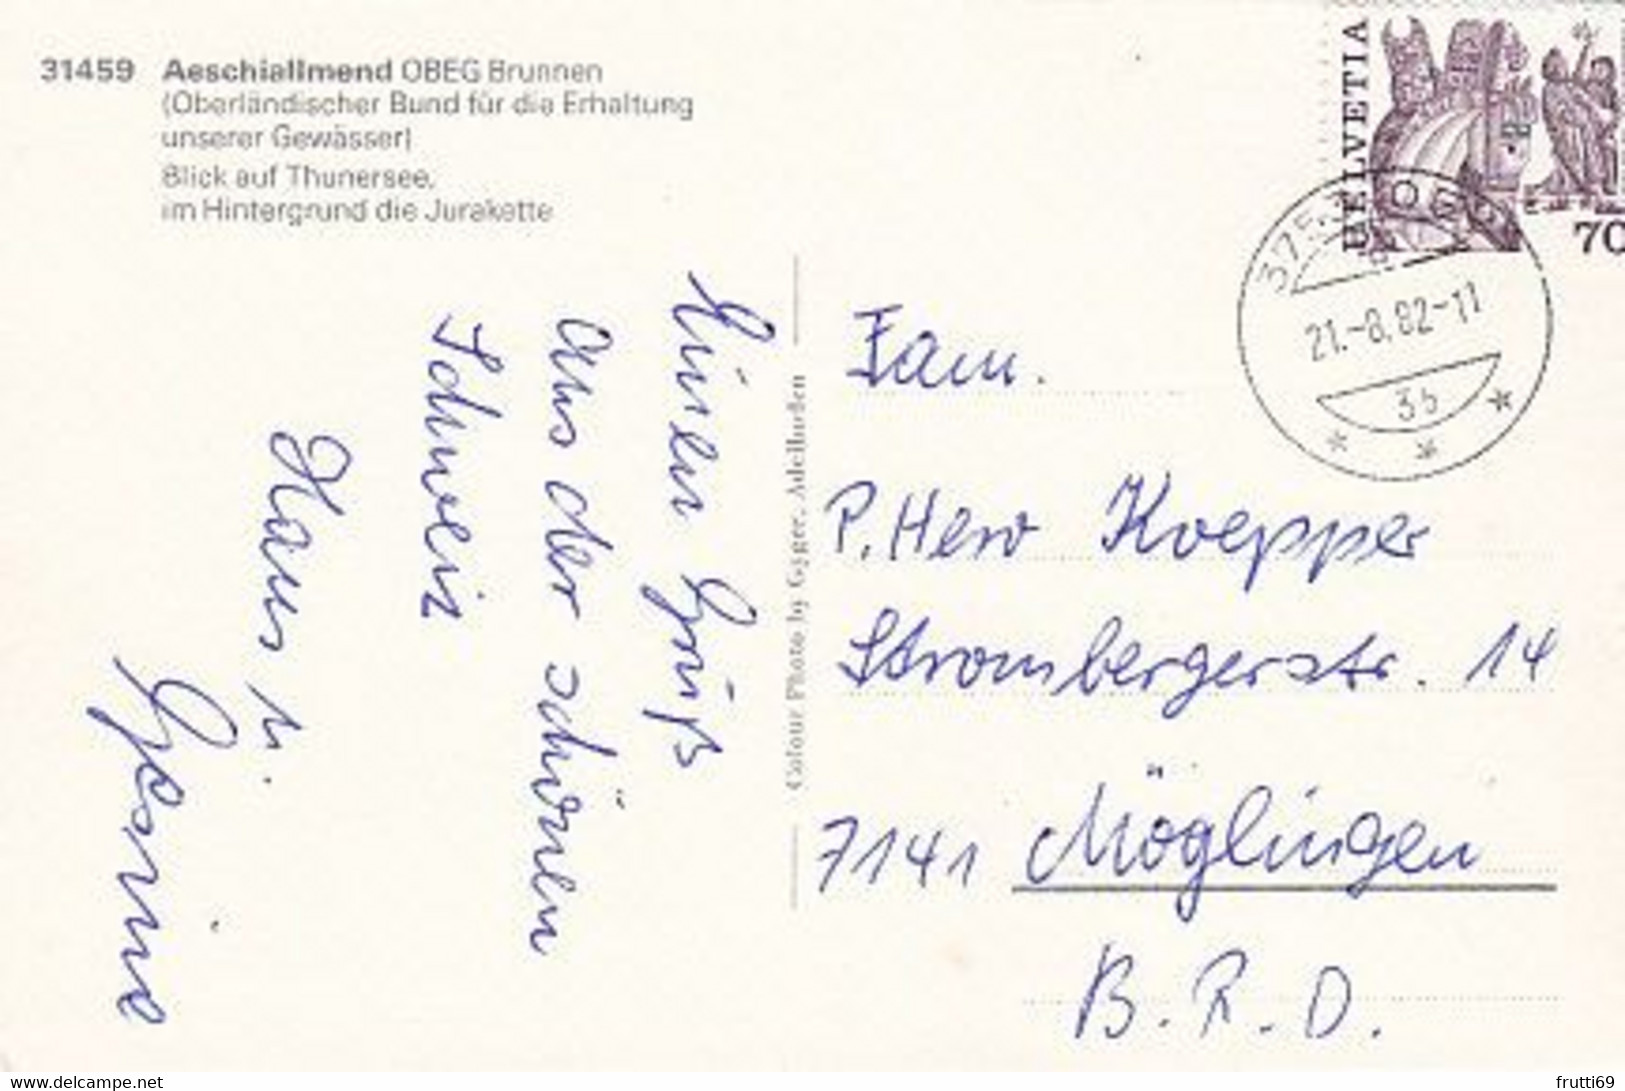 31459 Aeschiallmend OBEG Brunnen
(Oberländischer Bund für die Erhaltung
unserer Gewässer)
Blick auf Thunersee,
im Hintergrund die Jurakette
HELVETIA
70
21.-8.82-11
3b
Colour Photo by Gyger, Adelboden
Gruß
aus der schönen
Schweiz
Hans u.
Fam.
P. Herw Koepper
Strombergerstr. 14
7141 Möglingen
B.R.D.
www.delcampe.net
frutti69